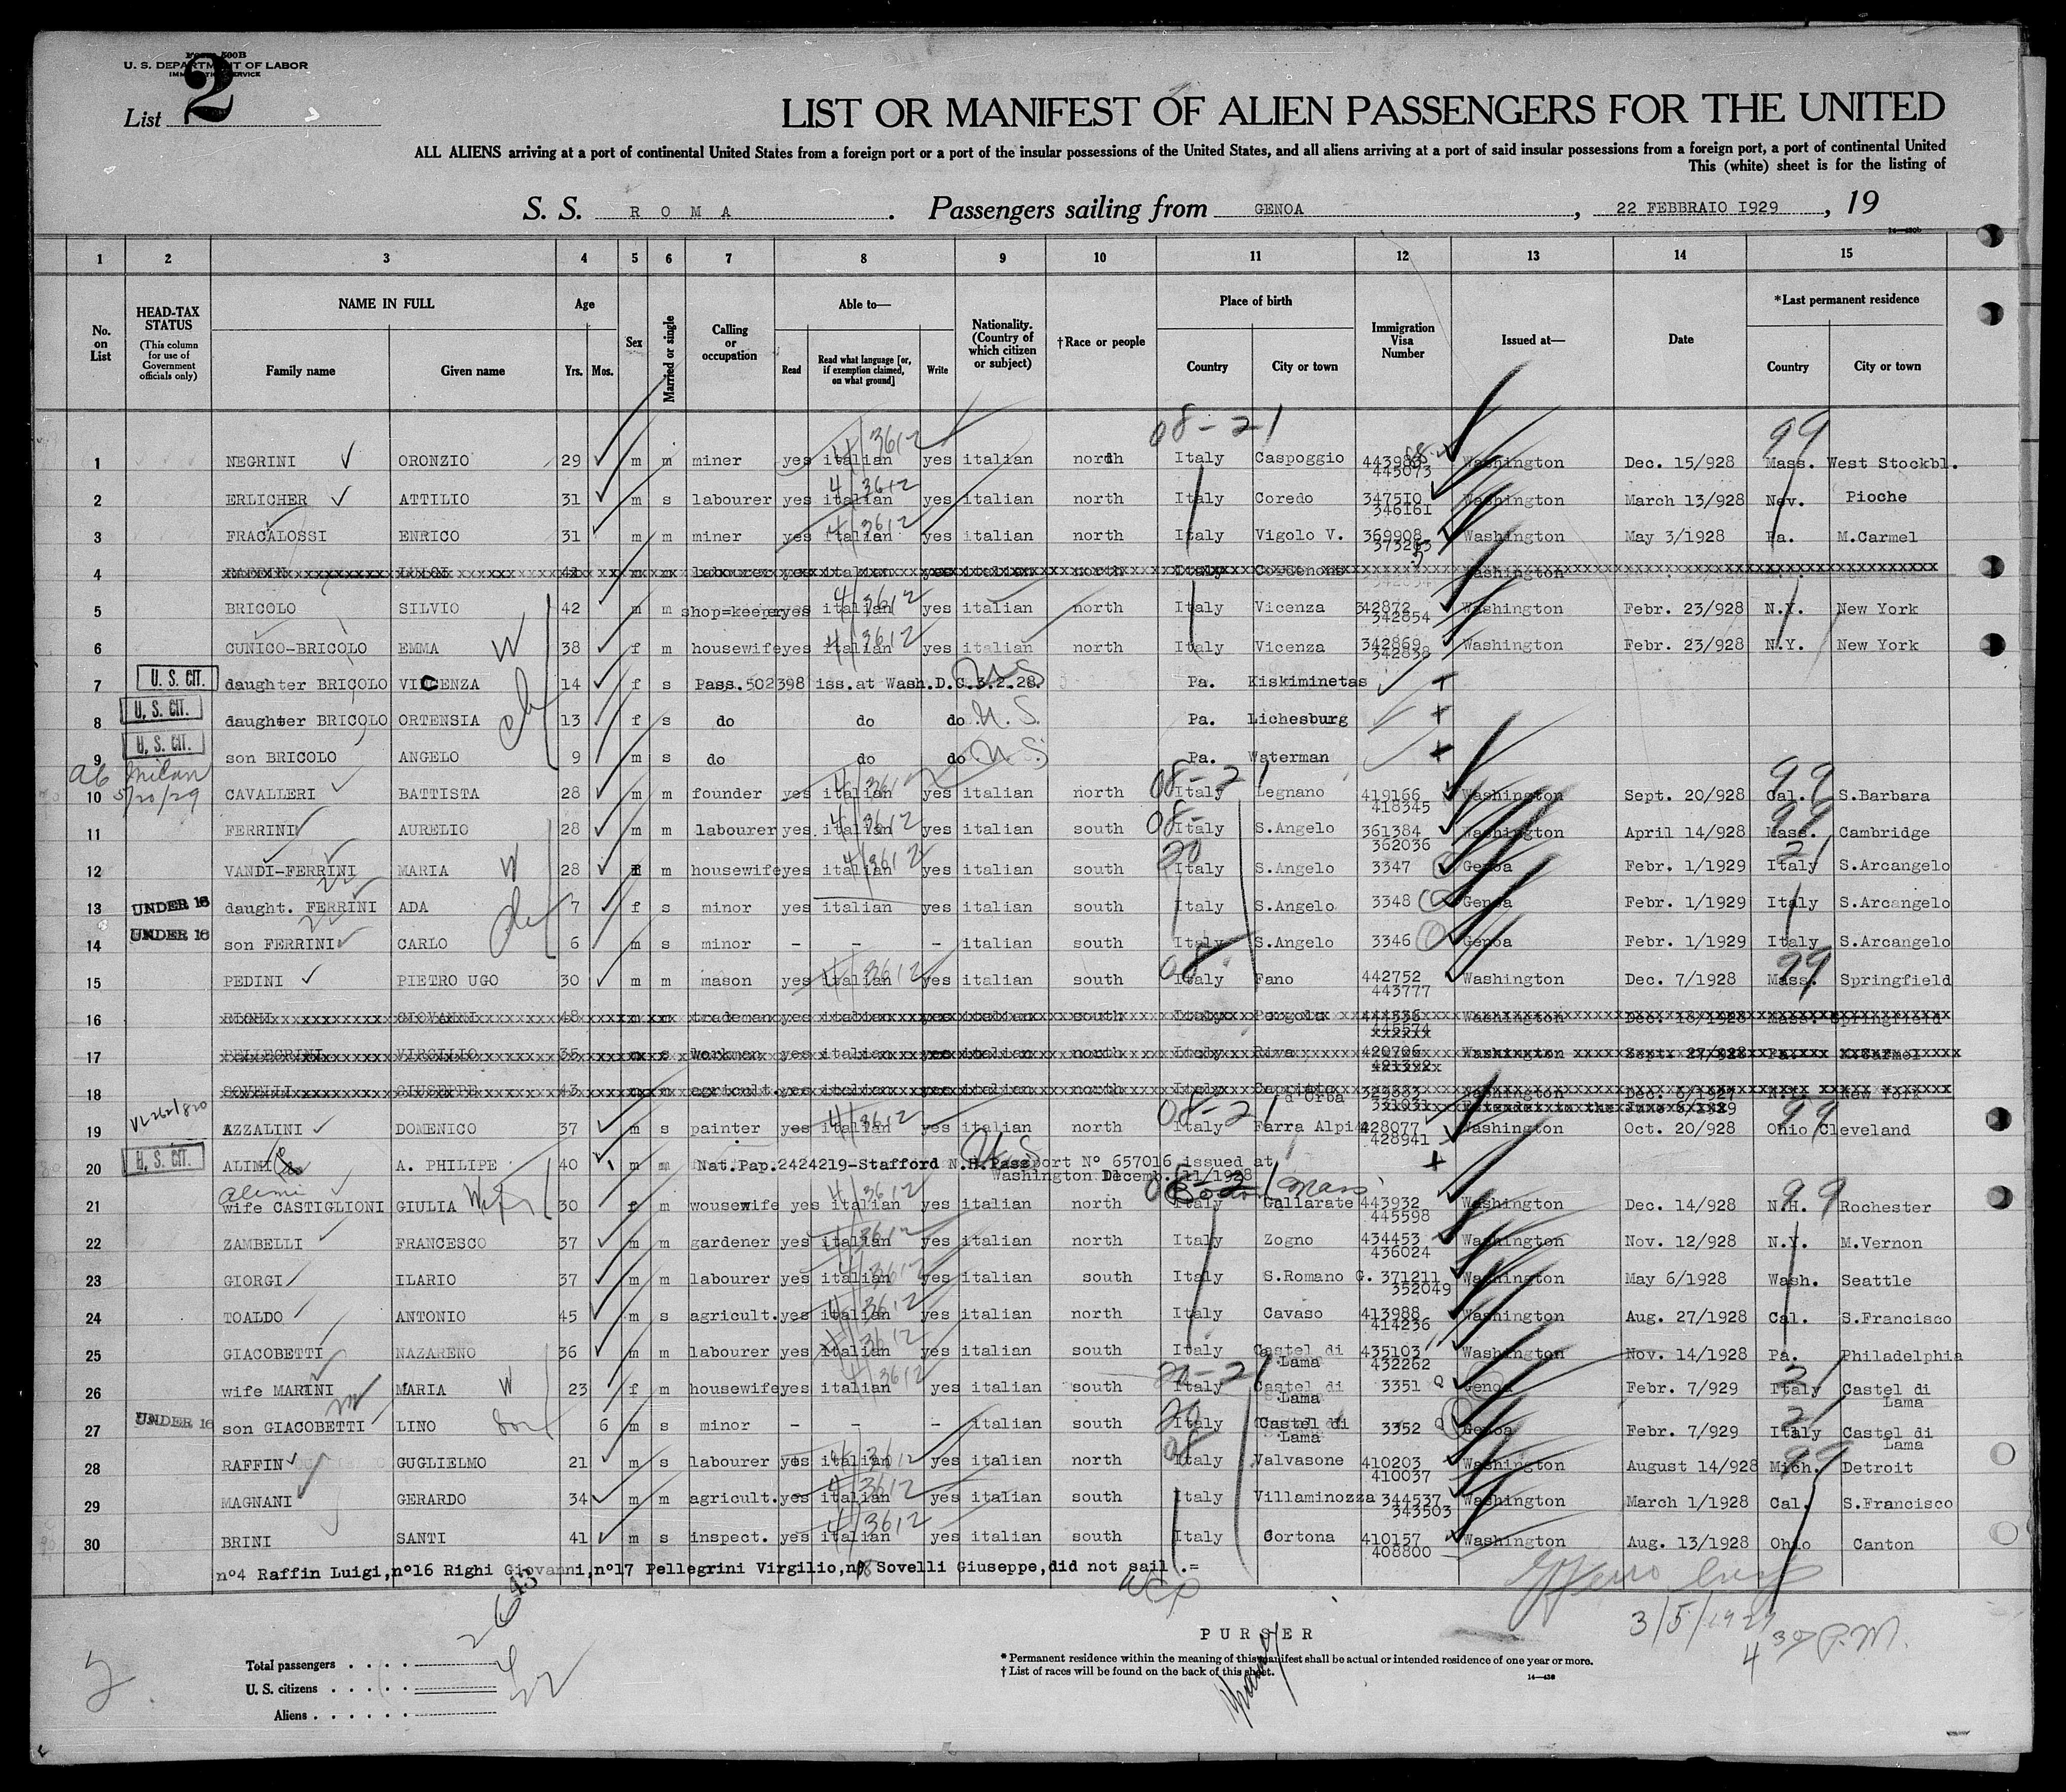 FORM 500B
U. S. DEPARTMENT OF LABOR
IMMIGRATION SERVICE
List 2
LIST OR MANIFEST OF ALIEN PASSENGERS FOR THE UNITED
ALL ALIENS arriving at a port of continental United States from a foreign port or a port of the insular possessions of the United States, and all aliens arriving at a port of said insular possessions from a foreign port, a port of continental United
This (white) sheet is for the listing of
S. S. ROMA . Passengers sailing from GENOA , 22 FEBBRAIO 1929 , 19
1 2 3 4 5 6 7 8 9 10 11 12 13 14 15
No. on List
HEAD-TAX STATUS (This column for use of Government officials only)
NAME IN FULL Family name Given name
Age Yrs. Mos.
Sex
Married or single
Calling or occupation
Able to— Read Read what language [or, if exemption claimed, on what ground] Write
Nationality. (Country of which citizen or subject)
†Race or people
Place of birth Country City or town
Immigration Visa Number
Issued at—
Date
*Last permanent residence Country City or town
08-21 99
1 NEGRINI ORONZIO 29 m m miner yes italian yes italian nord Italy Caspoggio 443983 445073 Washington Dec. 15/928 Mass. West Stockbl.
2 ERLICHER ATTILIO 31 m s labourer yes italian yes italian north Italy Coredo 347510 346161 Washington March 13/928 Nev. Pioche
3 FRACALOSSI ENRICO 31 m m miner yes italian yes italian north Italy Vigolo V. 369908 Washington May 3/1928 Pa. M.Carmel
4 RAFFIN LUIGI 41 m m labourer yes italian yes italian north Italy Cordenons Washington
5 BRICOLO SILVIO 42 m m shop=keeper yes italian yes italian north Italy Vicenza 342872 342854 Washington Febr. 23/928 N.Y. New York
6 CUNICO-BRICOLO EMMA W 38 f m housewife yes italian yes italian north Italy Vicenza 342869 342838 Washington Febr. 23/928 N.Y. New York
7 U. S. CIT. daughter BRICOLO VICENZA 14 f s Pass.502398 iss.at Wash.D.C.3.2.28. U.S. Pa. Kiskiminetas
8 U. S. CIT. daughter BRICOLO ORTENSIA ch 13 f s do do do U.S. Pa. Lichesburg
9 U. S. CIT. son BRICOLO ANGELO 9 m s do do do U.S. Pa. Waterman
10 ab Milan 5/20/29 CAVALLERI BATTISTA 28 m m founder yes italian yes italian north Italy Legnano 419166 418345 Washington Sept. 20/928 Cal. S.Barbara
11 FERRINI AURELIO 28 m m labourer yes italian yes italian south Italy S.Angelo 361384 362036 Washington April 14/928 Mass. Cambridge
12 VANDI-FERRINI MARIA W 28 f m housewife yes italian yes italian south Italy S.Angelo 3347 Genoa Febr. 1/1929 Italy S.Arcangelo
13 UNDER 16 daught. FERRINI ADA 7 f s minor yes italian yes italian south Italy S.Angelo 3348 Genoa Febr. 1/1929 Italy S.Arcangelo
14 UNDER 16 son FERRINI CARLO ch 6 m s minor - - - italian south Italy S.Angelo 3346 Genoa Febr. 1/1929 Italy S.Arcangelo
15 PEDINI PIETRO UGO 30 m m mason yes italian yes italian south Italy Fano 442752 443777 Washington Dec. 7/1928 Mass. Springfield
16 RIGHI GIOVANNI 48 m m trademan yes italian yes italian south Italy Pergola 444536 445574 Washington Dec. 18/1928 Mass. Springfield
17 PELLEGRINI VIRGILIO 35 m s workman yes italian yes italian north Italy Riva 420706 421392 Washington Sept. 27/928 Pa. M.Carmel
18 SOVELLI GIUSEPPE 43 m m agricult. yes italian yes italian north Italy Capriata d'Orba 329883 331031 Washington Dec. 6/1927 N.Y. New York
Extended to the June 6/1929
19 AZZALINI DOMENICO 37 m s painter yes italian yes italian north Italy Farra Alpi 428077 428941 Washington Oct. 20/928 Ohio Cleveland
20 U. S. CIT. ALIMI A. PHILIPE 40 m m Nat.Pap.2424219-Stafford N.H.Passport N° 657016 issued at
Washington Decemb. 11/1928
Boston Mass
21 Alimi wife CASTIGLIONI GIULIA Wife 30 f m wousewife yes italian yes italian north Italy Gallarate 443932 445598 Washington Dec. 14/928 N.H. Rochester
22 ZAMBELLI FRANCESCO 37 m m gardener yes italian yes italian north Italy Zogno 434453 436024 Washington Nov. 12/928 N.Y. M.Vernon
23 GIORGI ILARIO 37 m m labourer yes italian yes italian south Italy S.Romano G. 371211 352049 Washington May 6/1928 Wash. Seattle
24 TOALDO ANTONIO 45 m s agricult. yes italian yes italian north Italy Cavaso 413988 414236 Washington Aug. 27/1928 Cal. S.Francisco
25 GIACOBETTI NAZARENO 36 m m labourer yes italian yes italian south Italy Castel di Lama 435103 432262 Washington Nov. 14/1928 Pa. Philadelphia
26 wife MARINI MARIA W 23 f m housewife yes italian yes italian south Italy Castel di Lama 3351 Genoa Febr. 7/929 Italy Castel di Lama
27 UNDER 16 son GIACOBETTI LINO son 6 m s minor - - - italian south Italy Castel di Lama 3352 Genoa Febr. 7/929 Italy Castel di Lama
28 RAFFIN GUGLIELMO 21 m s labourer yes italian yes italian north Italy Valvasone 410203 410037 Washington August 14/928 Mich. Detroit
29 MAGNANI GERARDO 34 m m agricult. yes italian yes italian south Italy Villaminozza 344537 343503 Washington March 1/1928 Cal. S.Francisco
30 BRINI SANTI 41 m s inspect. yes italian yes italian south Italy Cortona 410157 408800 Washington Aug. 13/1928 Ohio Canton
n°4 Raffin Luigi,n°16 Righi Giovanni,n°17 Pellegrini Virgilio,n°18 Sovelli Giuseppe,did not sail.=
3/5/1929
4 30 P.M.
PURSER
Total passengers
U. S. citizens
Aliens
* Permanent residence within the meaning of this manifest shall be actual or intended residence of one year or more.
† List of races will be found on the back of this sheet.
14—430
2